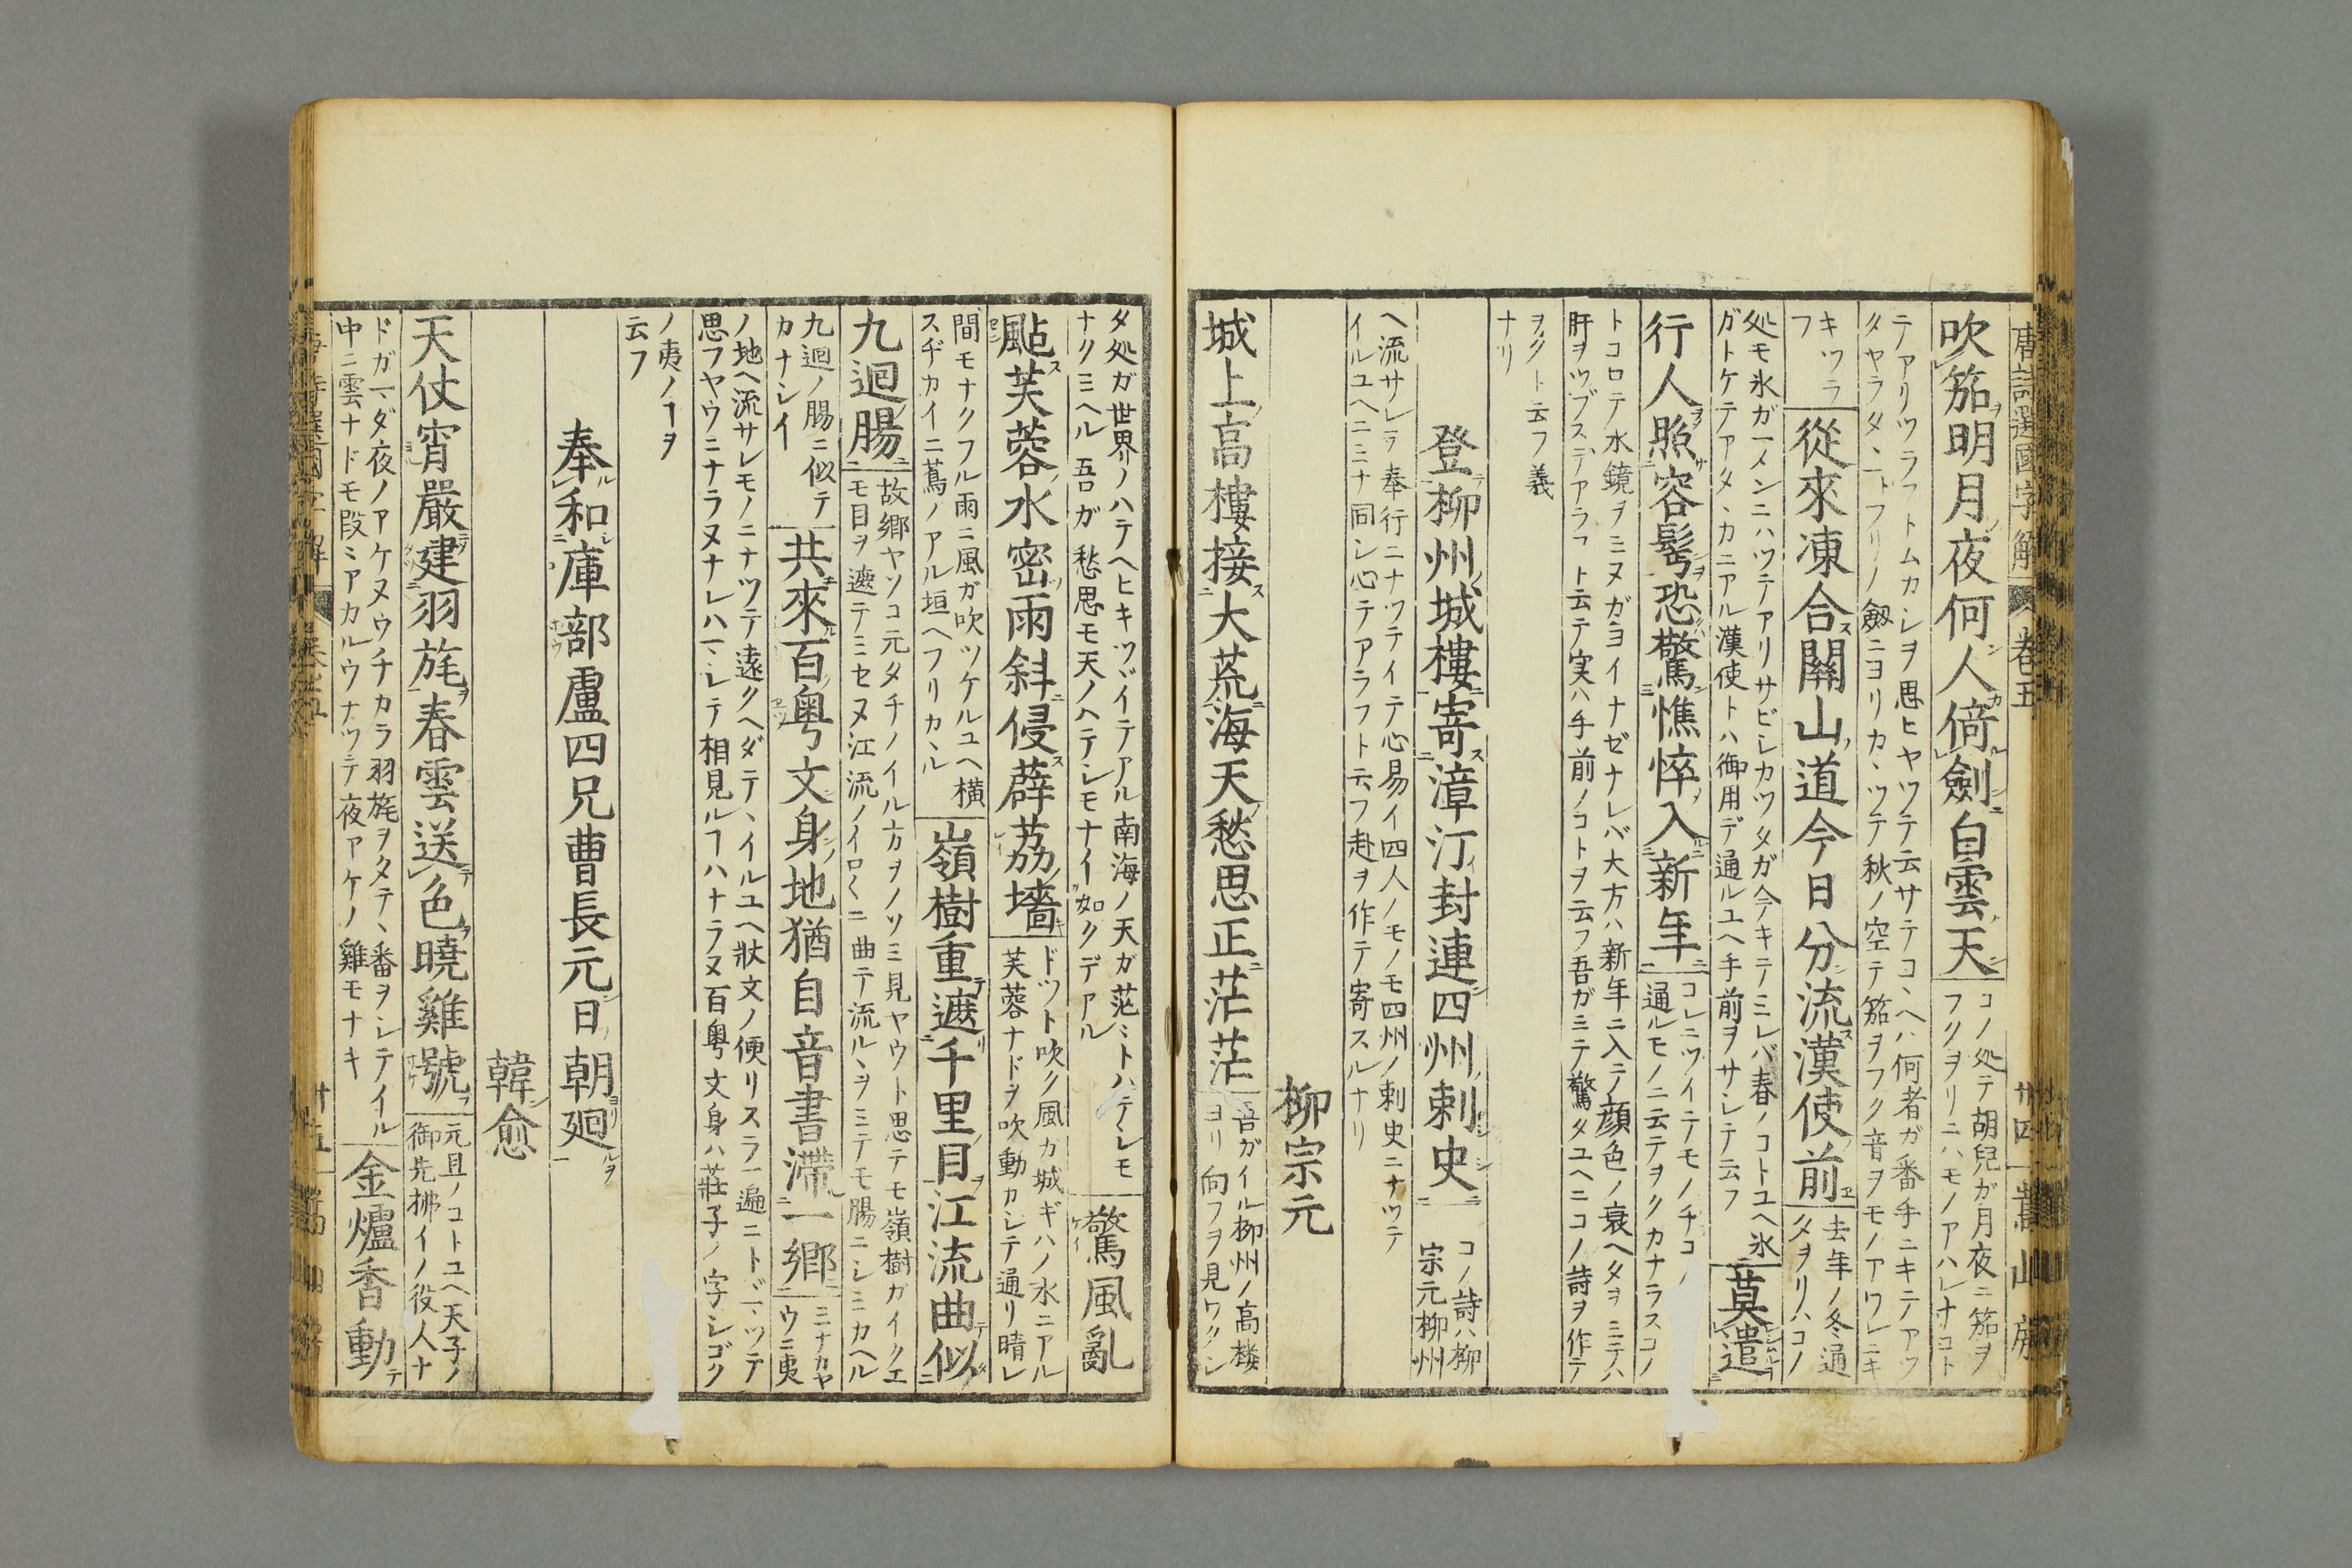 唐詩選國字解 卷五 廿四 嵩山房
吹笳明月夜何人倚劍白雲天
コノ処テ胡兒ガ月夜ニ笳ヲ
フクヲリニハモノアハレナコト
テアリツラフトムカシヲ思ヒヤツテ云サテコヽヘハ何者ガ番手ニキテアツ
タヤラタ
劔ニヨリカヽツテ秋ノ空テ笳ヲフク音ヲモノアワレニキ
キツラ
フ
從來凍合關山道今日分流漢使前
去年ノ冬通
タヲリハコノ
処モ氷ガ一メンニハツテアリサビシカツタガ今キテミレバ春ノコトユヘ氷
ガトケテアタヽカニアル漢使トハ御用デ通ルユヘ手前ヲサシテ云フ
莫遣
行人照容鬢恐驚憔悴入新年
コレニツイテモノチコノ
通ルモノニ云テヲクカナラスコノ
トコロテ水鏡ヲミヌガヨイナゼナレバ大方ハ新年ニ入テ顔色ノ衰ヘタヲミテハ
肝ヲツブスデアラフト云テ実ハ手前ノコトヲ云フ吾ガミテ驚タユヘニコノ詩ヲ作テ
ヲクト云フ義
ナリ
登柳州城樓寄漳汀封連四州刺史
コノ詩ハ柳
宗元柳州
ヘ流サレテ奉行ニナツテイテ心易イ四人ノモノモ四州ノ刺史ニナツテ
イルユヘニミナ同シ心テアラフト云フ赴ヲ作テ寄スルナリ
柳宗元
城上高樓接大荒海天愁思正茫茫
吾ガイル柳州ノ高楼
ヨリ向フヲ見ワタシ
タ処ガ世界ノハテヘヒキツヾイテアル南海ノ天ガ茫ミトハテシモ
ナクミヘル吾ガ愁思モ天ノハテシモナイ如クデアル
驚風亂
颭芙蓉水密雨斜侵薜荔墻
ドツト吹ク風カ城ギハノ水ニアル
芙蓉ナドヲ吹動カシテ通リ晴レ
間モナクフル雨ニ風ガ吹ツケルユヘ横
スヂカイニ蔦ノアル垣ヘフリカヽル
嶺樹重遮千里目江流曲似
九迴腸
故郷ヤソコ元タチノイル方ヲノソミ見ヤウト思テモ嶺樹ガイクエ
モ目ヲ遮テミセヌ江流ノイロ〱ニ曲テ流ルヽヲミテモ腸ニシミカヘル
九迴ノ腸ニ似テ
カナシイ
共來百粤文身地猶自音書滯一鄉
ミナカヤ
ウニ夷
ノ地ヘ流サレモノニナツテ遠クヘダテヽイルユヘ狀文ノ便リスラ一遍ニトヾマツテ
思フヤウニナラヌナレハマシテ相見ルヿハナラヌ百粤文身ハ莊子ノ字シゴク
ノ夷ノヿヲ
云フ
奉和庫部盧四兄曹長元日朝廻
韓愈
天仗宵嚴建羽旄春雲送色曉雞號
元旦ノコトユヘ天子ノ
御先拂イノ役人ナ
ドガマダ夜ノアケヌウチカラ羽旄ヲタテヽ番ヲシテイル
中ニ雲ナドモ段ミアカルウナツテ夜アケノ雞モナキ
金爐香動